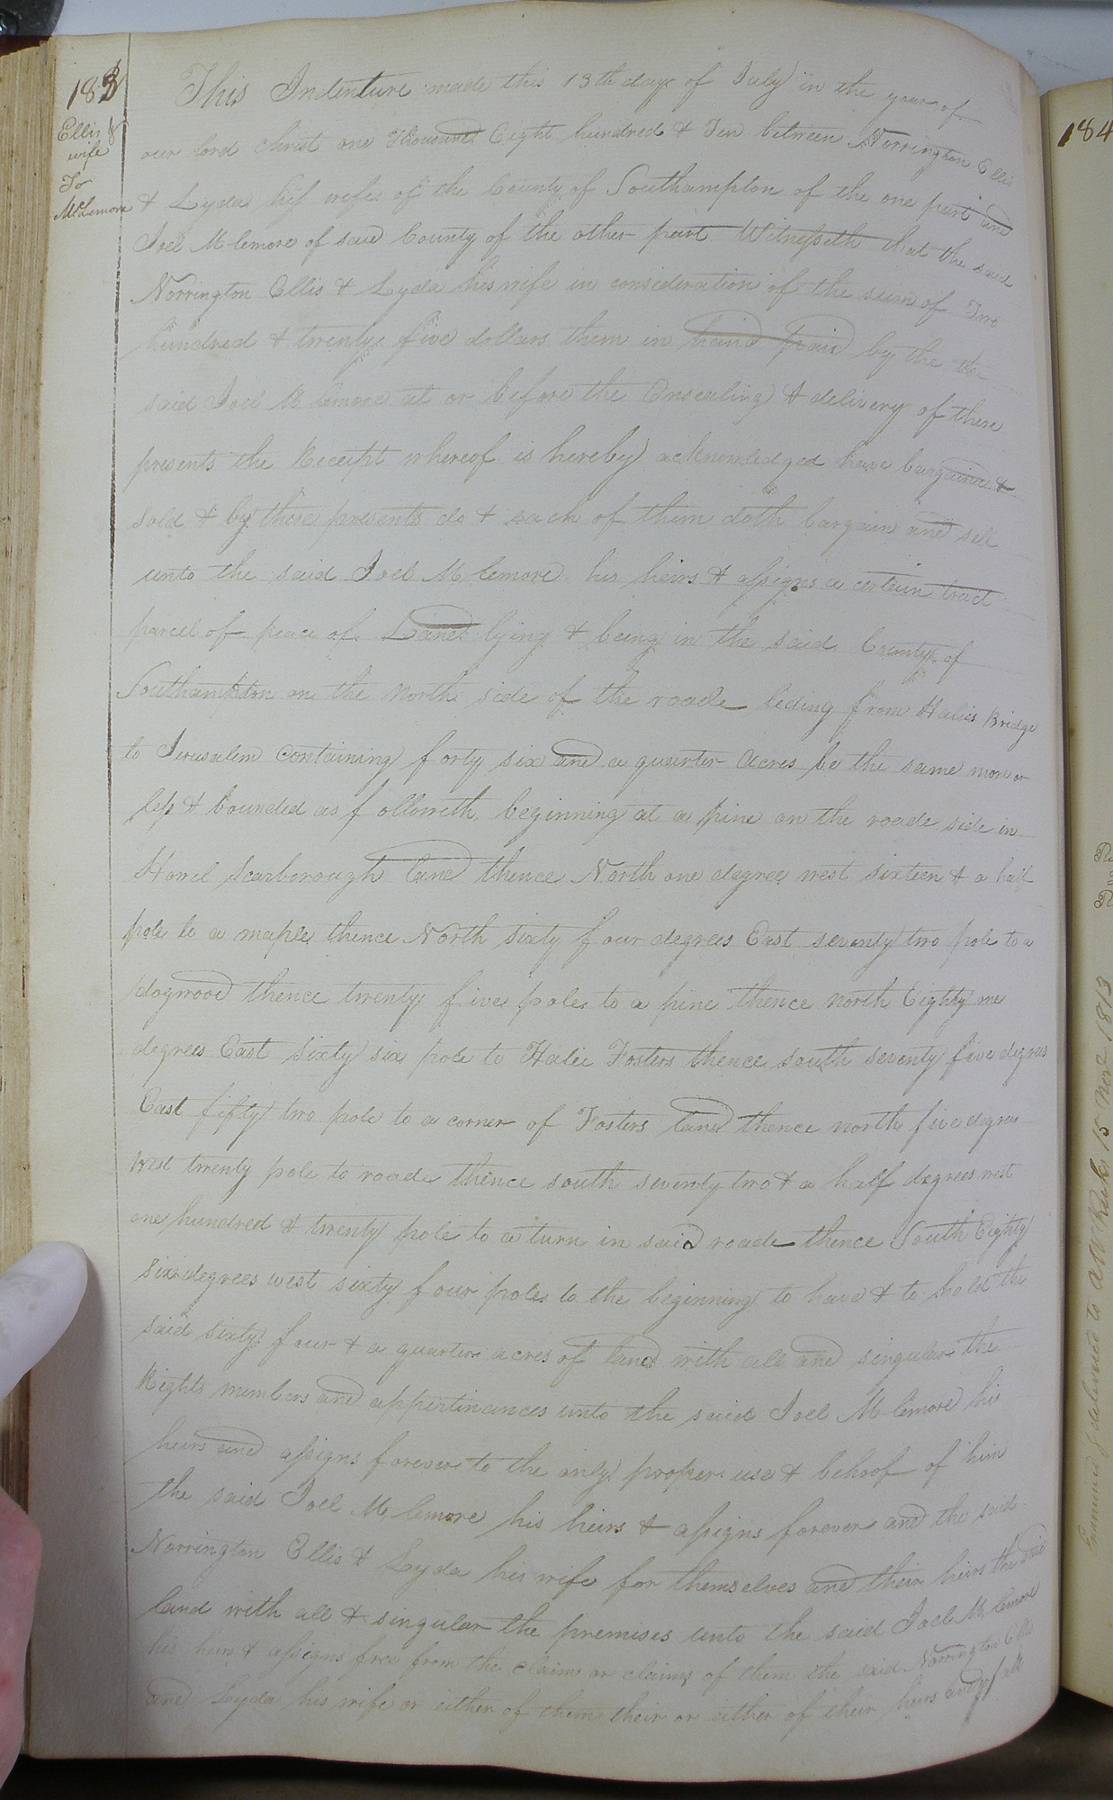 183
Ellis &
wife
To
McLemore
This Indenture made this 13th day of July in the year of
our lord Christ one thousand Eight hundred & Ten between Norrington Ellis
& Lyda his wife of the County of Southampton of the one part and
Joel Mclemore of said County of the other part Witnesseth that the said
Norrington Ellis & Lyda his wife in consideration of the sum of Two
hundred & twenty five dollars them in hand paid by the
said Joel Mclemore at or before the Ensealing & delivery of these
presents the Receipt whereof is hereby acknowledged have bargained &
sold & by these presents do & each of them doth bargain and sell
unto the said Joel Mclemore his heirs & assigns a certain tract
parcel of peace of Land lying & being in the said County of
Southampton on the North side of the roade leding from Hales Bridge
to Jerusalem containing forty six and a quarter acres be the same more or
less & bounded as followeth beginning at a pine on the roade side in
Howel Scarborough land thence North one degree west sixteen & a half
pole to a maple thence North sixty four degrees East seventy two pole to a
dogwood thence twenty five poles to a pine thence north Eighty one
degrees East sixty six pole to Halee Fosters thence south seventy five degrees
East fifty two pole to a corner of Fosters land thence north five degrees
west twenty pole to roade thence south seventy two & a half degrees west
one hundred & twenty pole to a turn in said roade thence South Eighty
six degrees west sixty four poles to the beginning to have & to hold the
said sixty four & a quarter acres of land with all and singular the
Rights members and appertinances unto the said Joel Mclemore his
heirs and assigns forever to the only proper use & behoof of him
the said Joel Mclemore his heirs & assigns forever and the said
Norrington Ellis & Lyda his wife for themselves and their heirs the said
land with all & singular the premises unto the said Joel Mclemore
his heirs & assigns free from the claim or claims of them the said Norrington Ellis
and Lyda his wife or either of them their or either of their heirs and of all
184
Examined & delivered to 15 Nov 1813